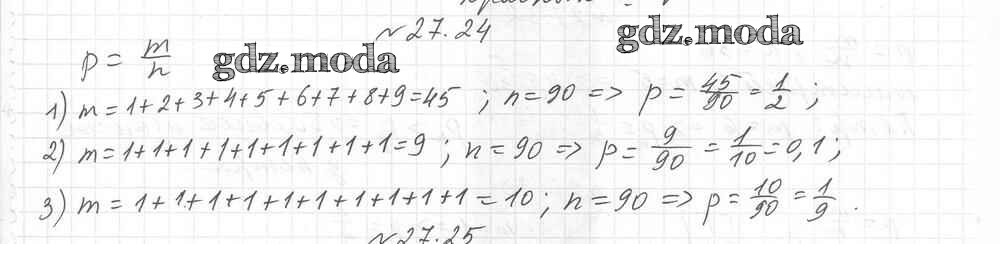 №27.24
gdz.moda
p = m/n
gdz.moda
1) m = 1+2+3+4+5+6+7+8+9=45 ; n=90 => p = 45/90 = 1/2 ;
2) m = 1+1+1+1+1+1+1+1+1=9 ; n = 90 => p = 9/90 = 1/10 = 0,1 ;
3) m = 1+1+1+1+1+1+1+1+1+1 = 10 ; n = 90 => p = 10/90 = 1/9 .
№27.25